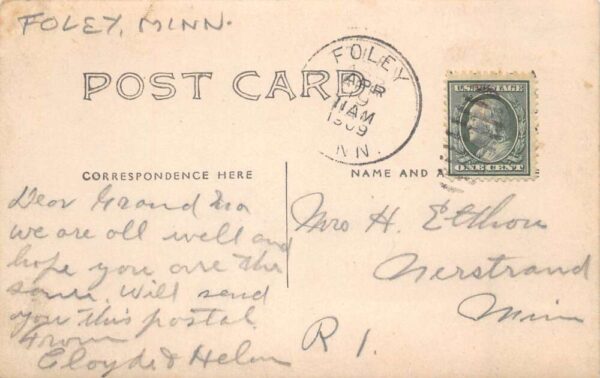 FOLEY, MINN.
POST CARD
FOLEY
APR
9
11 AM
1909
NN.
U.S. POSTAGE
ONE CENT
CORRESPONDENCE HERE
NAME AND A
Dear Grand Ma
we are all well and
hope you are the
same. Will send
you this postal
From
Cloyde & Helen
Mrs H.
Nerstrand
Minn
R 1.